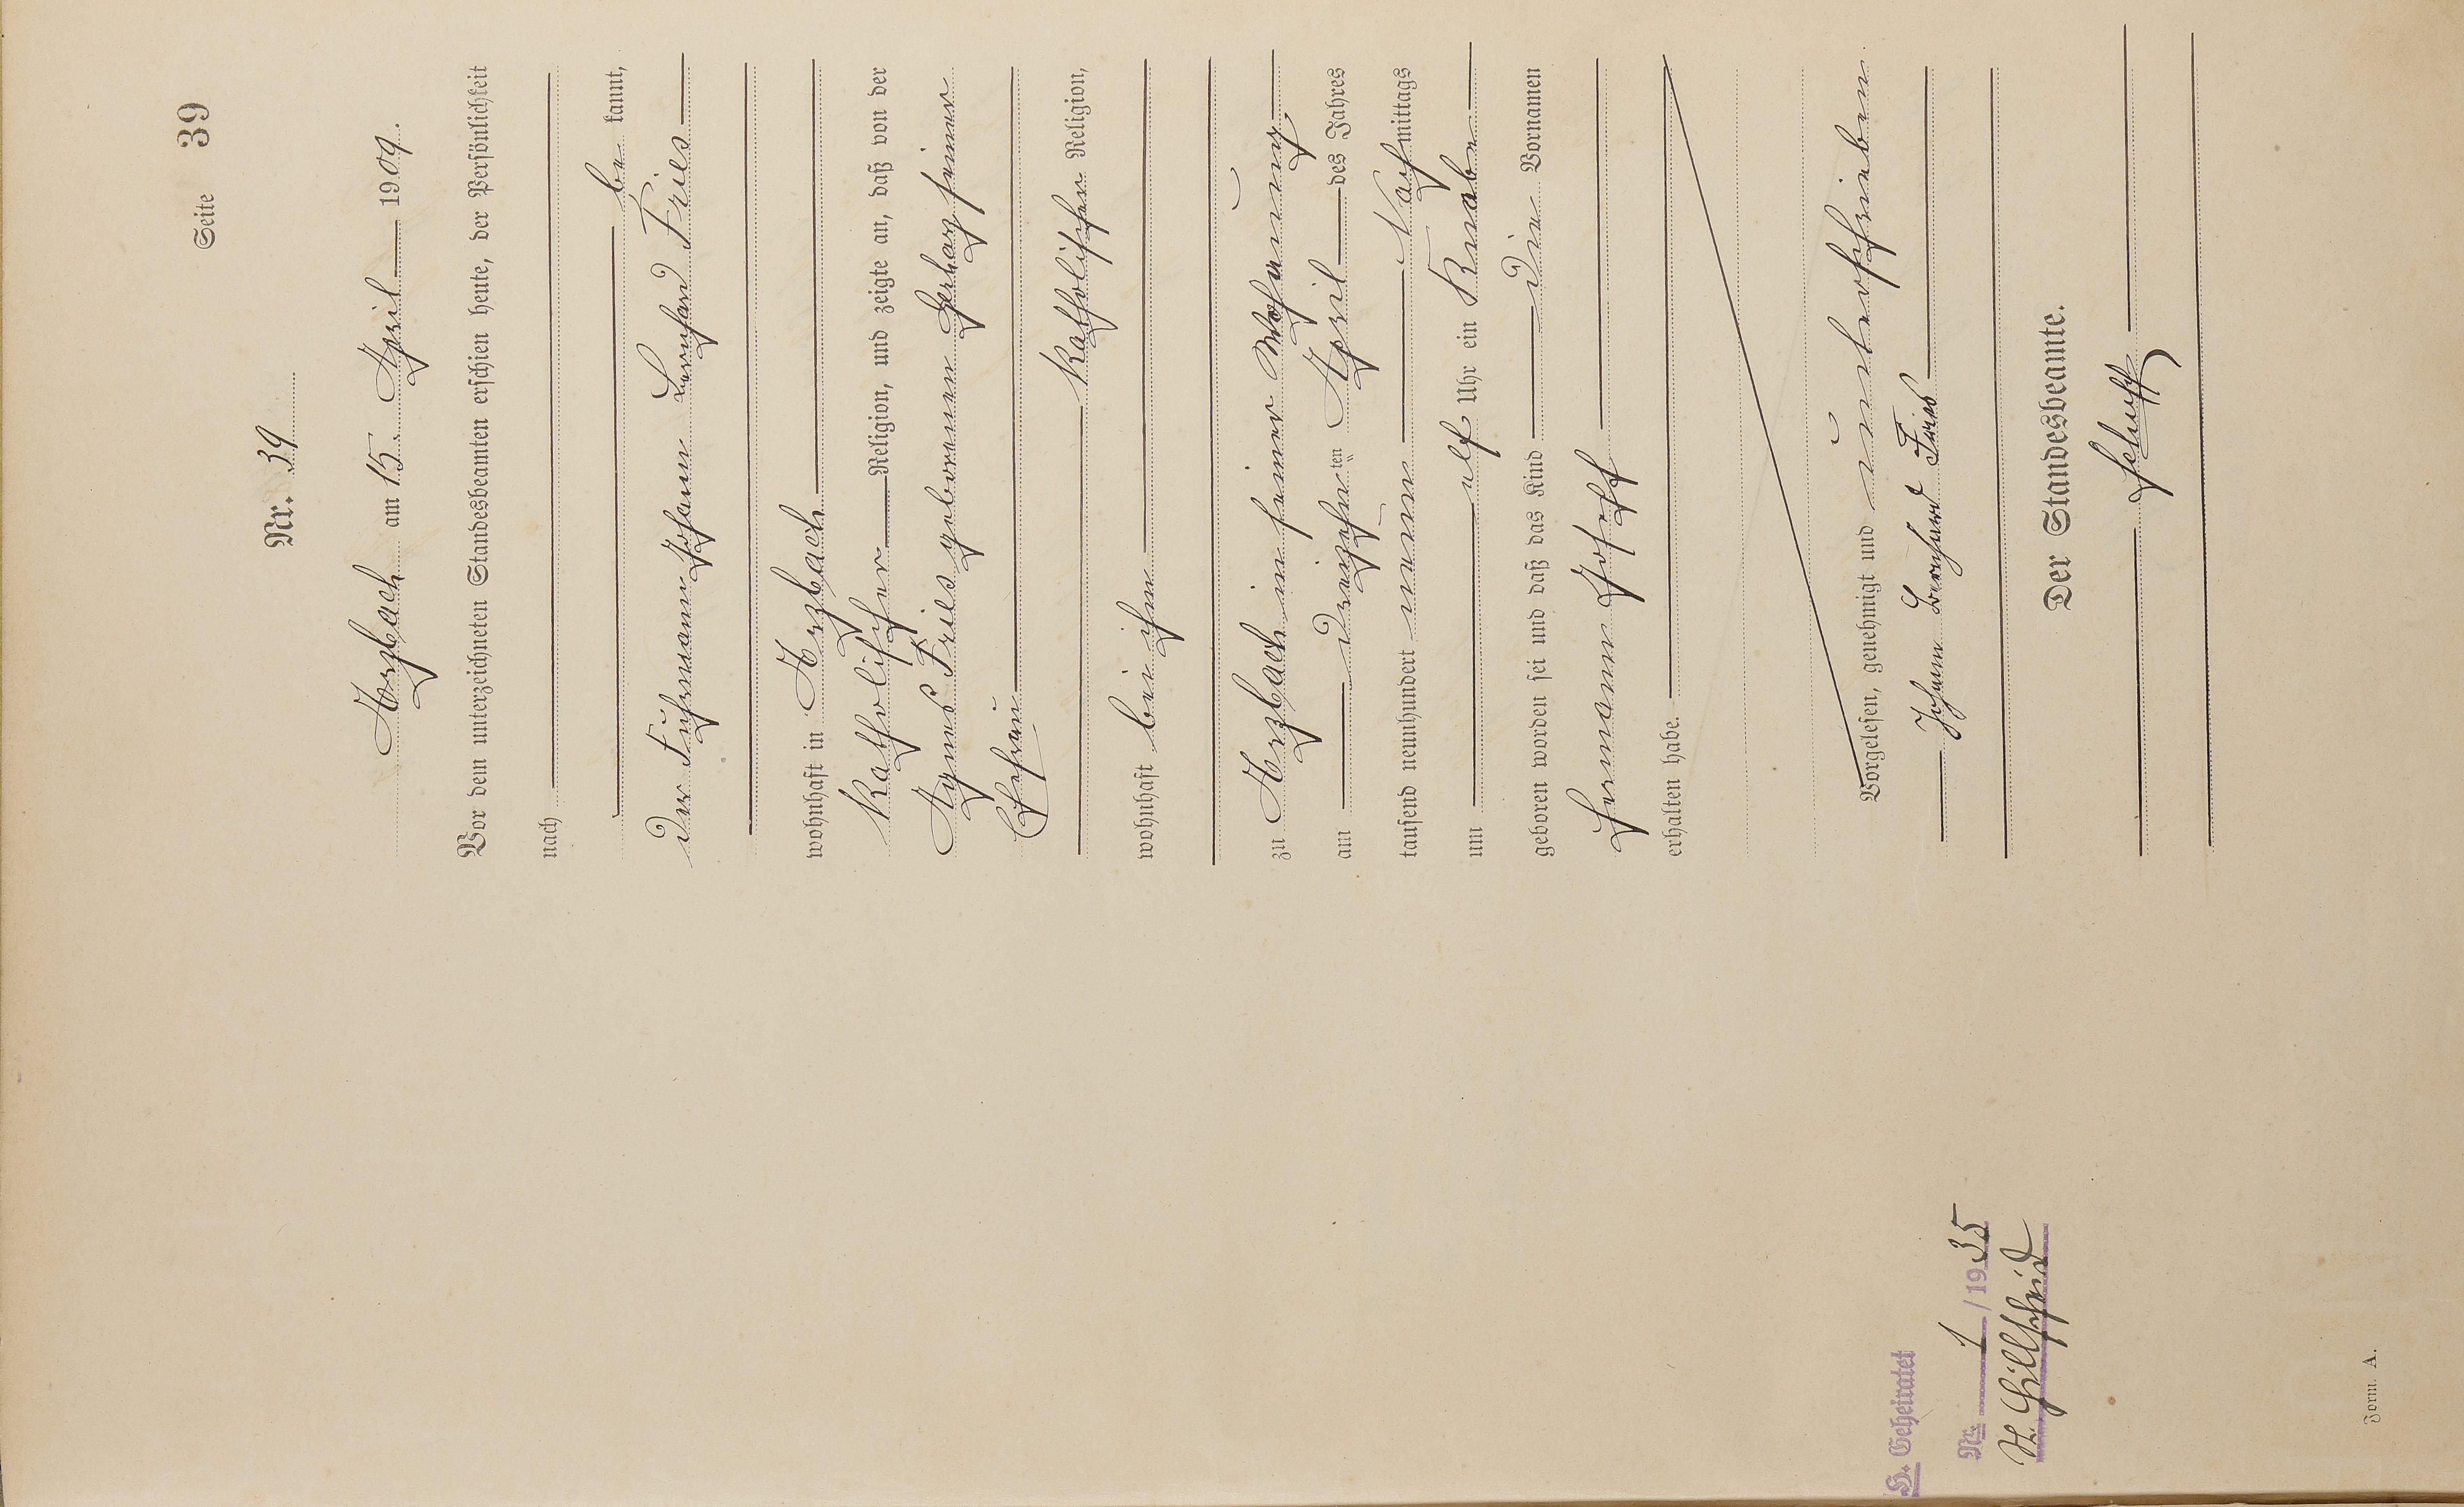 Seite 39
Nr. 39
Arzbach am 15. April 1909.
Vor dem unterzeichneten Standesbeamten erschien heute, der Persönlichkeit
nach
be kannt,
der Fuhrmann Johann Bernhard Fries
wohnhaft in Arzbach
katholischer Religion, und zeigte an, daß von der
Agnes Fries geborenen Herbay seiner
Ehefrau
katholischen Religion,
wohnhaft bei ihm
zu Arzbach in seiner Wohnung
am dreizehn ten April des Jahres
tausend neunhundert neun Nachmittags
um elf Uhr ein Knabe
geboren worden sei und daß das Kind die Vornamen
Hermann Josef
erhalten habe.
Vorgelesen, genehmigt und unterschrieben
Johann Bernhard Fries
Der Standesbeamte.
H. Geheiratet
Nr. 1 / 1935
St. Hillscheid
Form. A.